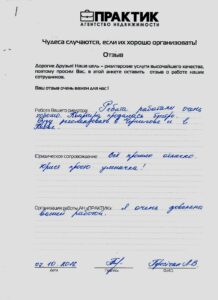 ПРАКТИК
АГЕНТСТВО НЕДВИЖИМОСТИ
Чудеса случаются, если их хорошо организовать!
Отзыв
Дорогие Друзья! Наша цель – риэлтерские услуги высочайшего качества,
поэтому просим Вас, в этой анкете оставить отзыв о работе наших
сотрудников.
Ваш отзыв очень важен для нас!
Работа Вашего риэлтора работали очень
хорошо. Квартира продалась быстро.
Буду рекомендовать в и в
Юридическое сопровождение: Всё прошло отлично
просто умничка!
Организация работы АН «ПРАКТИК» Я очень довольна
вашей работой.
07.10.2016
Дата
Подпись
Ф.И.О.